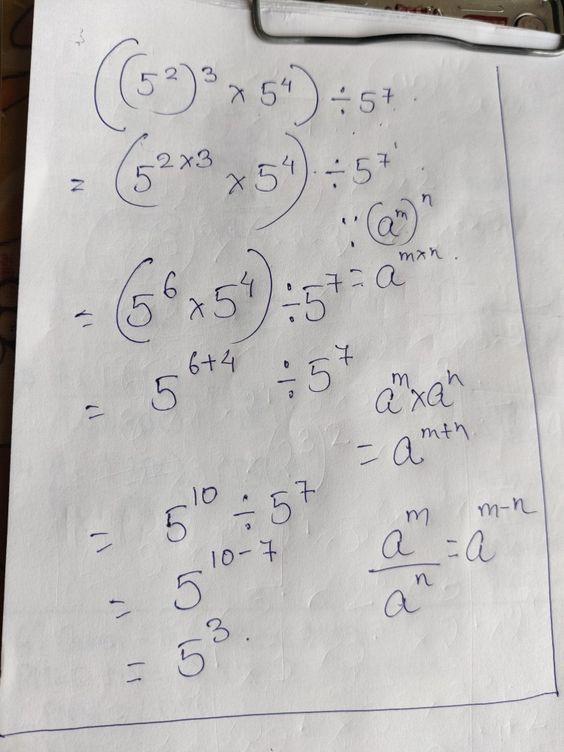 ((5²)³ × 5⁴) ÷ 5⁷
= (5²ˣ³ × 5⁴) ÷ 5⁷
∵ (aᵐ)ⁿ
= (5⁶ × 5⁴) ÷ 5⁷ = aᵐˣⁿ
= 5⁶⁺⁴ ÷ 5⁷
aᵐ × aⁿ
= aᵐ⁺ⁿ
= 5¹⁰ ÷ 5⁷
= 5¹⁰⁻⁷
aᵐ/aⁿ = aᵐ⁻ⁿ
= 5³.